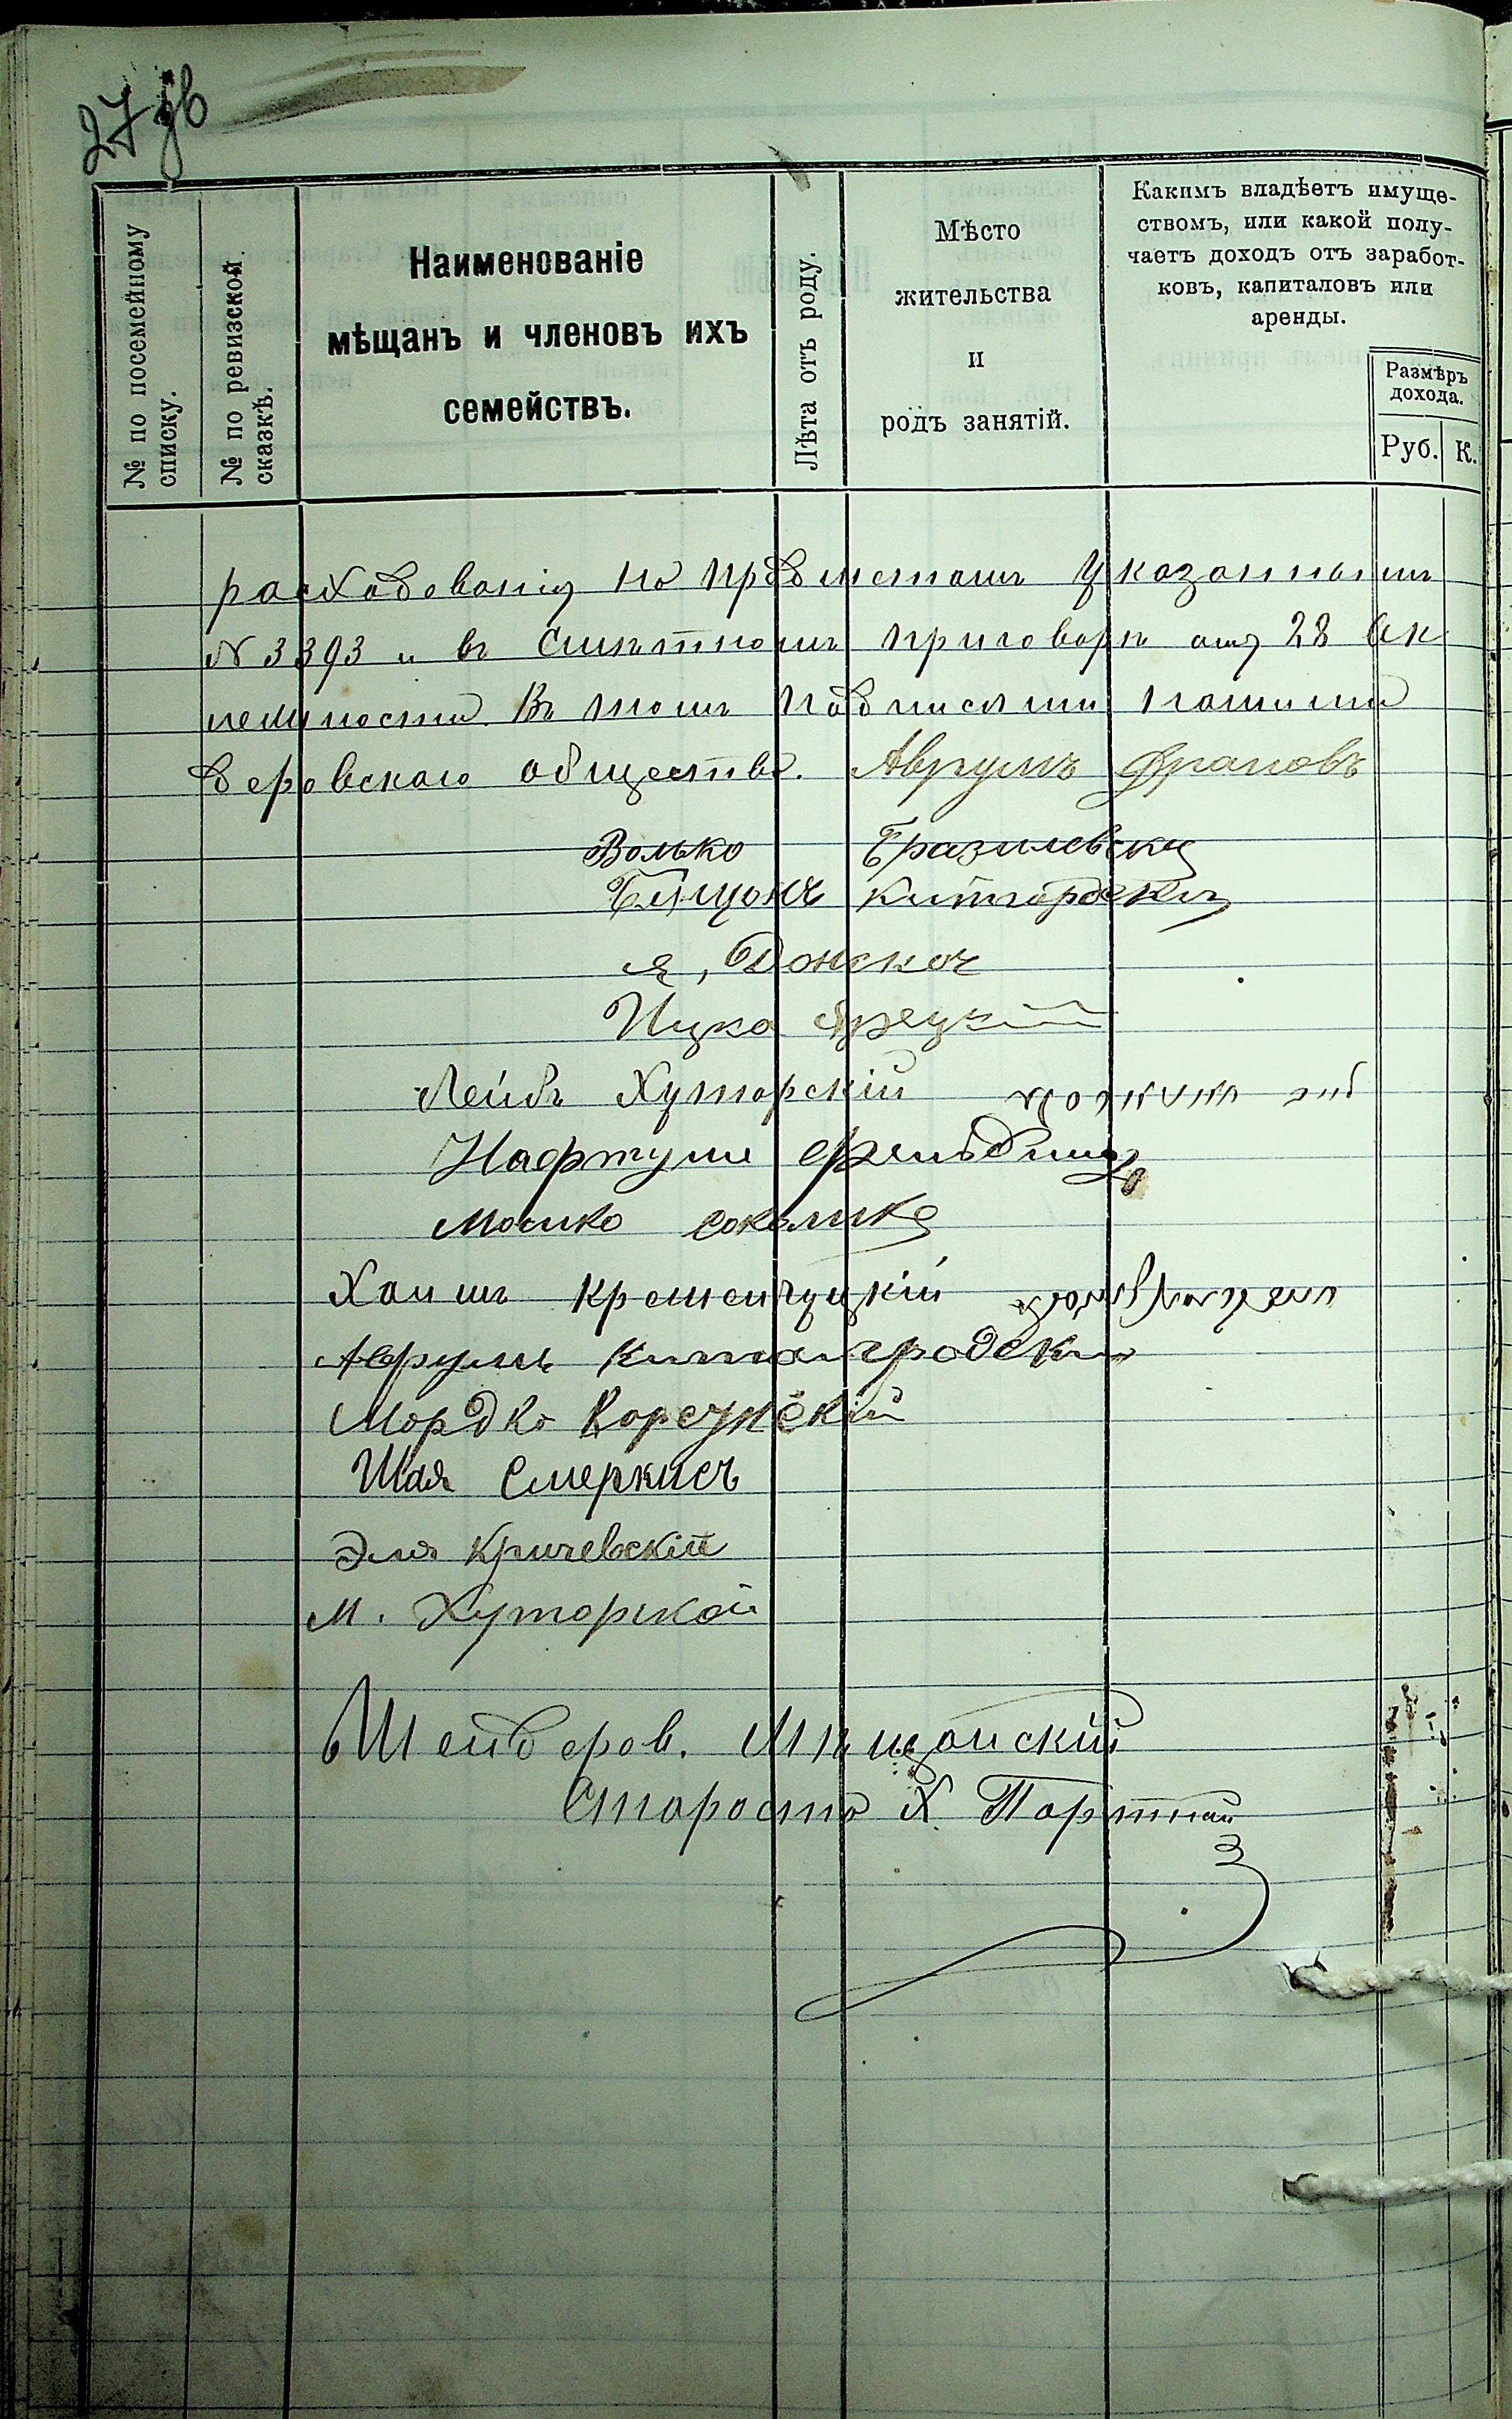 27 об
№ по посемейному списку.
№ по ревизской сказкѣ.
Наименованіе
мѣщанъ и членовъ ихъ
семействъ.
Лѣта отъ роду.
Мѣсто
жительства
и
родъ занятій.
Какимъ владѣетъ имуще-
ствомъ, или какой полу-
чаетъ доходъ отъ заработ-
ковъ, капиталовъ или
аренды.
Размѣръ
дохода.
Руб. К.
расходованія на предметамъ указаннымъ
N 3393 и въ смѣтномъ приговорѣ отъ 28
Въ томъ подписями нашими
деровскаго общества. Аврумъ Драновъ
Волько Бразилевски
Китгородскій
я, Донской
Ицко
Лейбъ Хуторскій
Нафтули
Мошко
Хаимъ Кременчуцкій
Аврумъ Китайгродски
Мордко Корсунскій
Шая Смеркисъ
Эля Кричевскій
М. Хуторской
Шендеров. Мѣщанскій
Староста Х. Портной